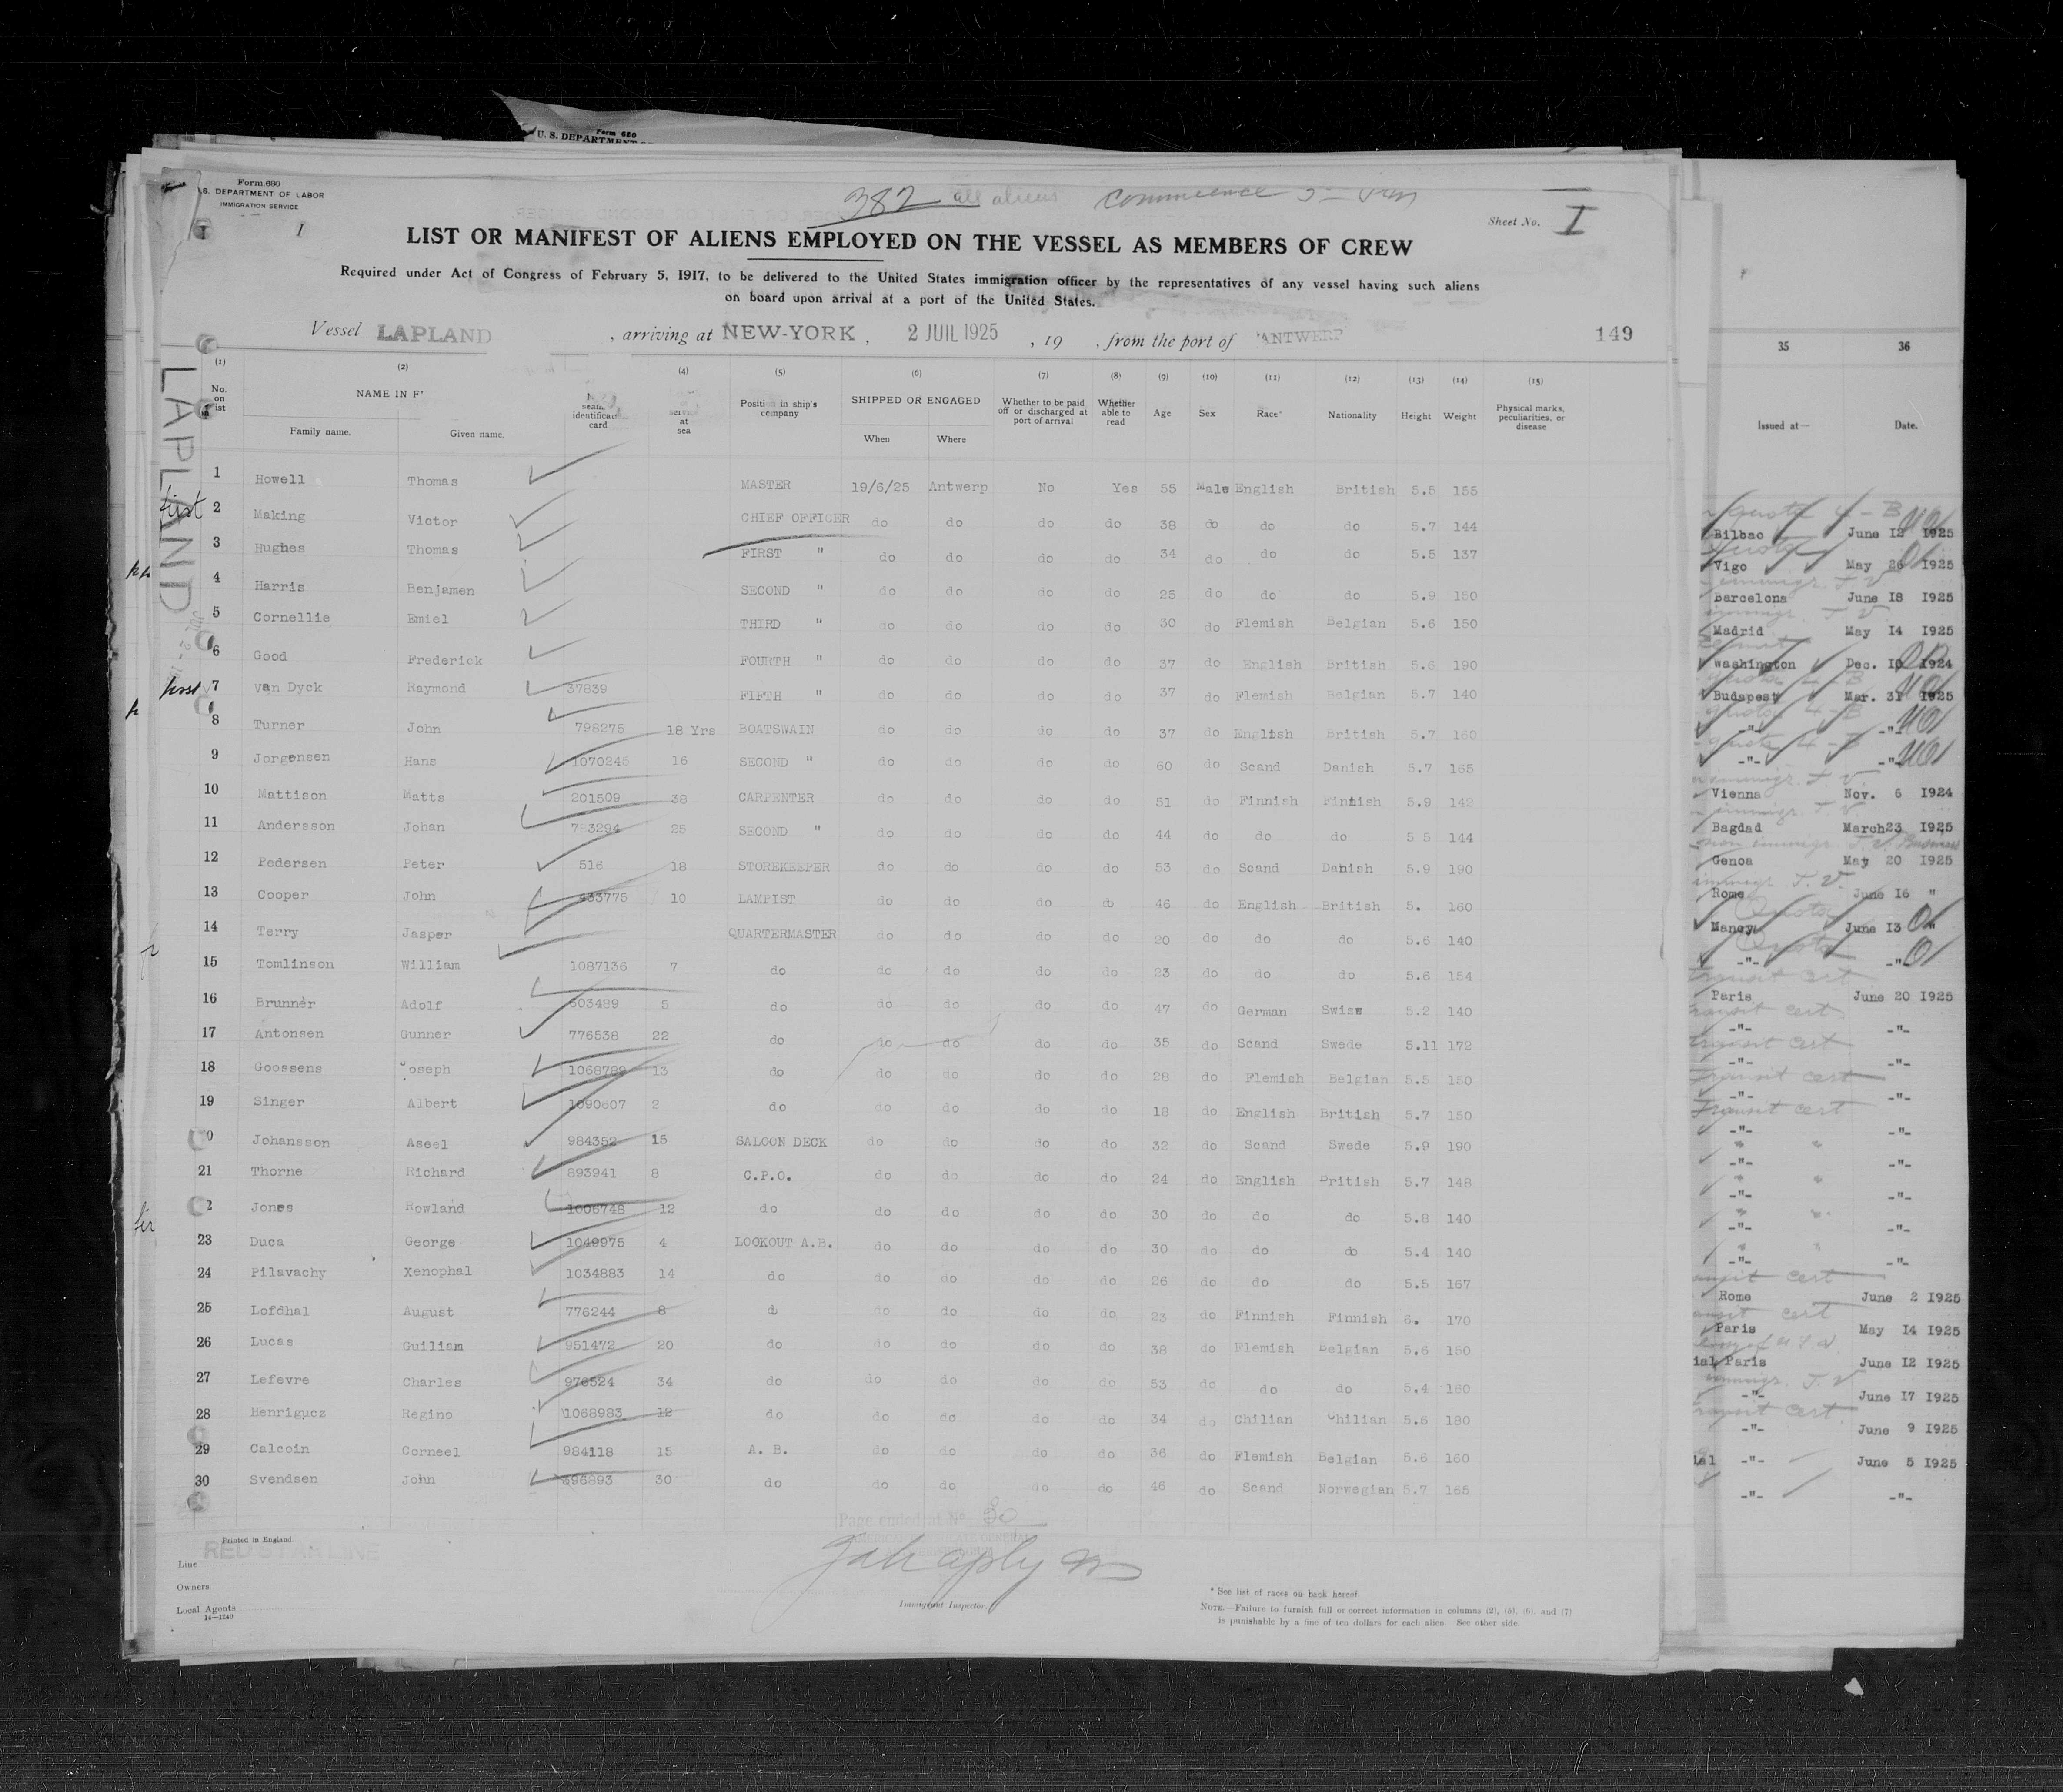 Form 680
U. S. DEPARTMENT
Form 680
S. DEPARTMENT OF LABOR
IMMIGRATION SERVICE
382 all aliens Commence
Sheet No. I
I I
LIST OR MANIFEST OF ALIENS EMPLOYED ON THE VESSEL AS MEMBERS OF CREW
Required under Act of Congress of February 5, 1917, to be delivered to the United States immigration officer by the representatives of any vessel having such aliens
on board upon arrival at a port of the United States.
Vessel LAPLAND , arriving at NEW-YORK , 2 JUIL 1925 , 19 , from the port of ANTWERP 149
LAPLAND
(1) (2) (4) (5) (6) (7) (8) (9) (10) (11) (12) (13) (14) (15)
No. on list NAME IN F Family name. Given name. identification card service at sea Position in ship's company SHIPPED OR ENGAGED When Where Whether to be paid off or discharged at port of arrival Whether able to read Age Sex Race* Nationality Height Weight Physical marks, peculiarities, or disease
1 Howell Thomas MASTER 19/6/25 Antwerp No Yes 55 Male English British 5.5 155
first 2 Making Victor CHIEF OFFICER do do do do 38 do do do 5.7 144
3 Hughes Thomas FIRST " do do do do 34 do do do 5.5 137
4 Harris Benjamen SECOND " do do do do 25 do do do 5.9 150
5 Cornellie Emiel THIRD " do do do do 30 do Flemish Belgian 5.6 150
6 Good Frederick FOURTH " do do do do 37 do English British 5.6 190
first 7 van Dyck Raymond 37839 FIFTH " do do do do 37 do Flemish Belgian 5.7 140
8 Turner John 798275 18 Yrs BOATSWAIN do do do do 37 do English British 5.7 160
9 Jorgensen Hans 1070245 16 SECOND " do do do do 60 do Scand Danish 5.7 165
10 Mattison Matts 201509 38 CARPENTER do do do do 51 do Finnish Finnish 5.9 142
11 Andersson Johan 783294 25 SECOND " do do do do 44 do do do 5 5 144
12 Pedersen Peter 516 18 STOREKEEPER do do do do 53 do Scand Danish 5.9 190
13 Cooper John 433775 10 LAMPIST do do do do 46 do English British 5. 160
14 Terry Jasper QUARTERMASTER do do do do 20 do do do 5.6 140
15 Tomlinson William 1087136 7 do do do do do 23 do do do 5.6 154
16 Brunnèr Adolf 503489 5 do do do do do 47 do German Swiss 5.2 140
17 Antonsen Gunner 776538 22 do do do do do 35 do Scand Swede 5.11 172
18 Goossens Joseph 1068789 13 do do do do do 28 do Flemish Belgian 5.5 150
19 Singer Albert 1090607 2 do do do do do 18 do English British 5.7 150
0 Johansson Aseel 984352 15 SALOON DECK do do do do 32 do Scand Swede 5.9 190
21 Thorne Richard 893941 8 C.P.O. do do do do 24 do English British 5.7 148
2 Jones Rowland 1006748 12 do do do do do 30 do do do 5.8 140
23 Duca George 1049975 4 LOOKOUT A.B. do do do do 30 do do do 5.4 140
24 Pilavachy Xenophal 1034883 14 do do do do do 26 do do do 5.5 167
25 Lofdhal August 776244 8 do do do do do 23 do Finnish Finnish 6. 170
26 Lucas Guiliam 951472 20 do do do do do 38 do Flemish Belgian 5.6 150
27 Lefevre Charles 976524 34 do do do do do 53 do do do 5.4 160
28 Henrigucz Regino 1068983 12 do do do do do 34 do Chilian Chilian 5.6 180
29 Calcoin Corneel 984118 15 A. B. do do do do 36 do Flemish Belgian 5.6 160
30 Svendsen John 396893 30 do do do do do 46 do Scand Norwegian 5.7 165
Page ended at No 30
Printed in England
Line RED STAR LINE
Owners
Local Agents
14—1240
Immigrant Inspector.
* See list of races on back hereof.
NOTE.—Failure to furnish full or correct information in columns (2), (5), (6), and (7)
is punishable by a fine of ten dollars for each alien. See other side.
35 36
Issued at— Date.
Quota 4-B
Bilbao June 12 1925
Vigo May 26 1925
Barcelona June 18 1925
Madrid May 14 1925
Washington Dec. 10 1924
Budapest Mar. 31 1925
-"- -"-
-"- -"-
Vienna Nov. 6 1924
Bagdad March 23 1925
Genoa May 20 1925
Rome June 16 "
Quota
Nancy June 13 "
Quota
-"- -"-
Transit cert
Paris June 20 1925
Transit cert
-"- -"-
Transit cert
-"- -"-
Transit cert
-"- -"-
Transit cert
-"- -"-
-"- -"-
-"- -"-
-"- -"-
-"- -"-
Rome June 2 1925
Paris May 14 1925
ial Paris June 12 1925
-"- June 17 1925
-"- June 9 1925
ial -"- June 5 1925
-"- -"-